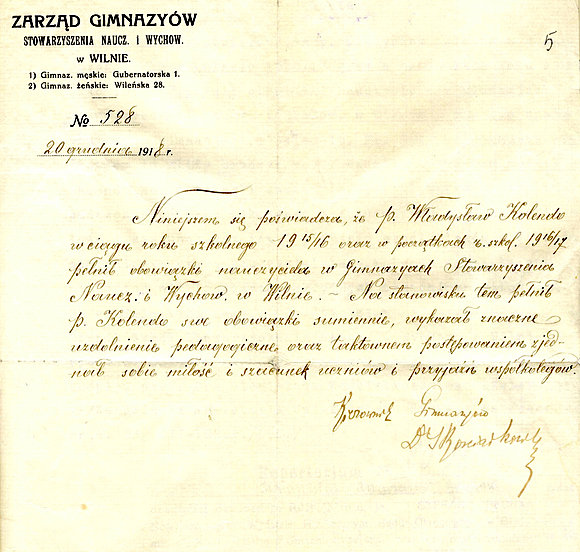 ZARZĄD GIMNAZYÓW
STOWARZYSZENIA NAUCZ. I WYCHOW.
w WILNIE.
1) Gimnaz. męskie: Gubernatorska 1.
2) Gimnaz. żeńskie: Wileńska 28.
5
№ 528
20 grudnia 1918 r.
Niniejszem się poświadcza, że p. Władysław Kolendo
w ciągu roku szkolnego 1915/16 oraz w początkach r. szkol. 1916/17
pełnił obowiązki nauczyciela w Gimnazyach Stowarzyszenia
Naucz. i Wychow. w Wilnie. – Na stanowisku tem pełnił
p. Kolendo swe obowiązki sumiennie, wykazał znaczne
uzdolnienie pedagogiczne oraz taktownem postępowaniem zjed-
nał sobie miłość i szacunek uczniów i przyjaźń współkolegów.
Kierownik Gimnazyów
Dr